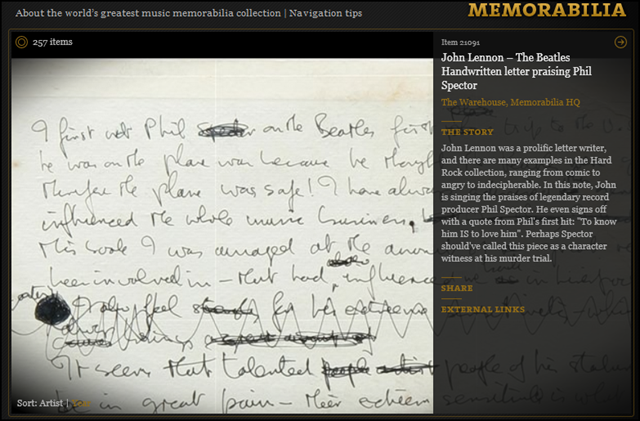 About the world's greatest music memorabilia collection | Navigation tips
MEMORABILIA
257 items
Item 21091
John Lennon – The Beatles
Handwritten letter praising Phil
Spector
The Warehouse, Memorabilia HQ
THE STORY
John Lennon was a prolific letter writer,
and there are many examples in the Hard
Rock collection, ranging from comic to
angry to indecipherable. In this note, John
is singing the praises of legendary record
producer Phil Spector. He even signs off
with a quote from Phil's first hit: "To know
him IS to love him". Perhaps Spector
should've called this piece as a character
witness at his murder trial.
SHARE
EXTERNAL LINKS
I first met Phil on the Beatles first
he was on the plane because he
the plane was safe! I have always
influenced the whole music business.
this book I was amazed at the
been involved in – that had influence
I also feel for his extreme
It seems that talented people of his
be in great pain – their extreme sensitivity is
Sort: Artist |